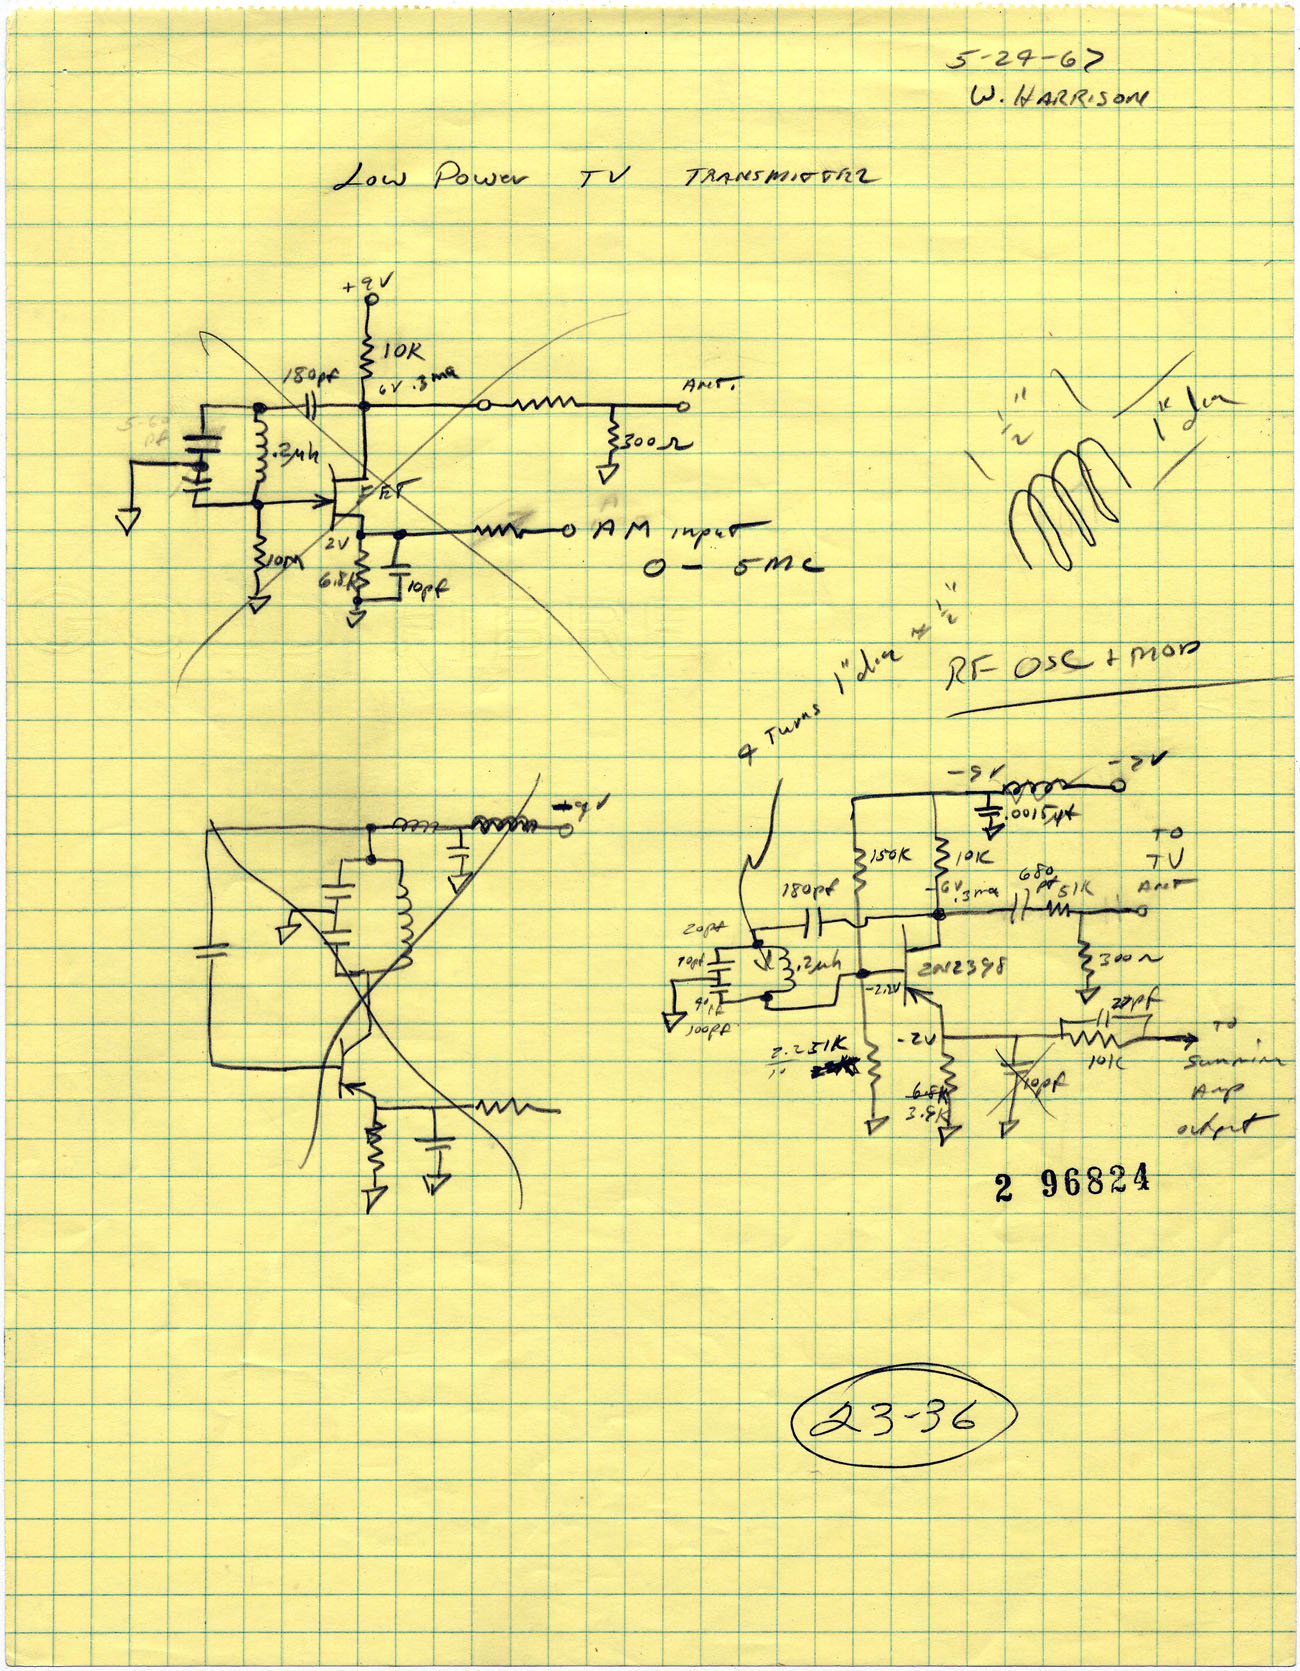 5-24-67
W. HARRISON
LOW POWER TV TRANSMITTER
+9V
10K
180pf
6V .3ma
ANT.
.2μh
300Ω
FET
2V
10M
6.8K
10pf
AM input
0 - 5MC
1/2"
1" dia
4 Turns 1" dia x 1/2"
RF OSC + MOD
9V
-9V
-9V
.0015μf
150K
10K
TO
TV
ANT
680
pf
51K
180pf
-6V
.3ma
20pf
.2μh
2N2398
300Ω
-2.2V
100pf
22pf
-2V
10K
TO
Summing
Amp
output
2.2
51K
6.8K
3.9K
10pf
2 96824
23-36